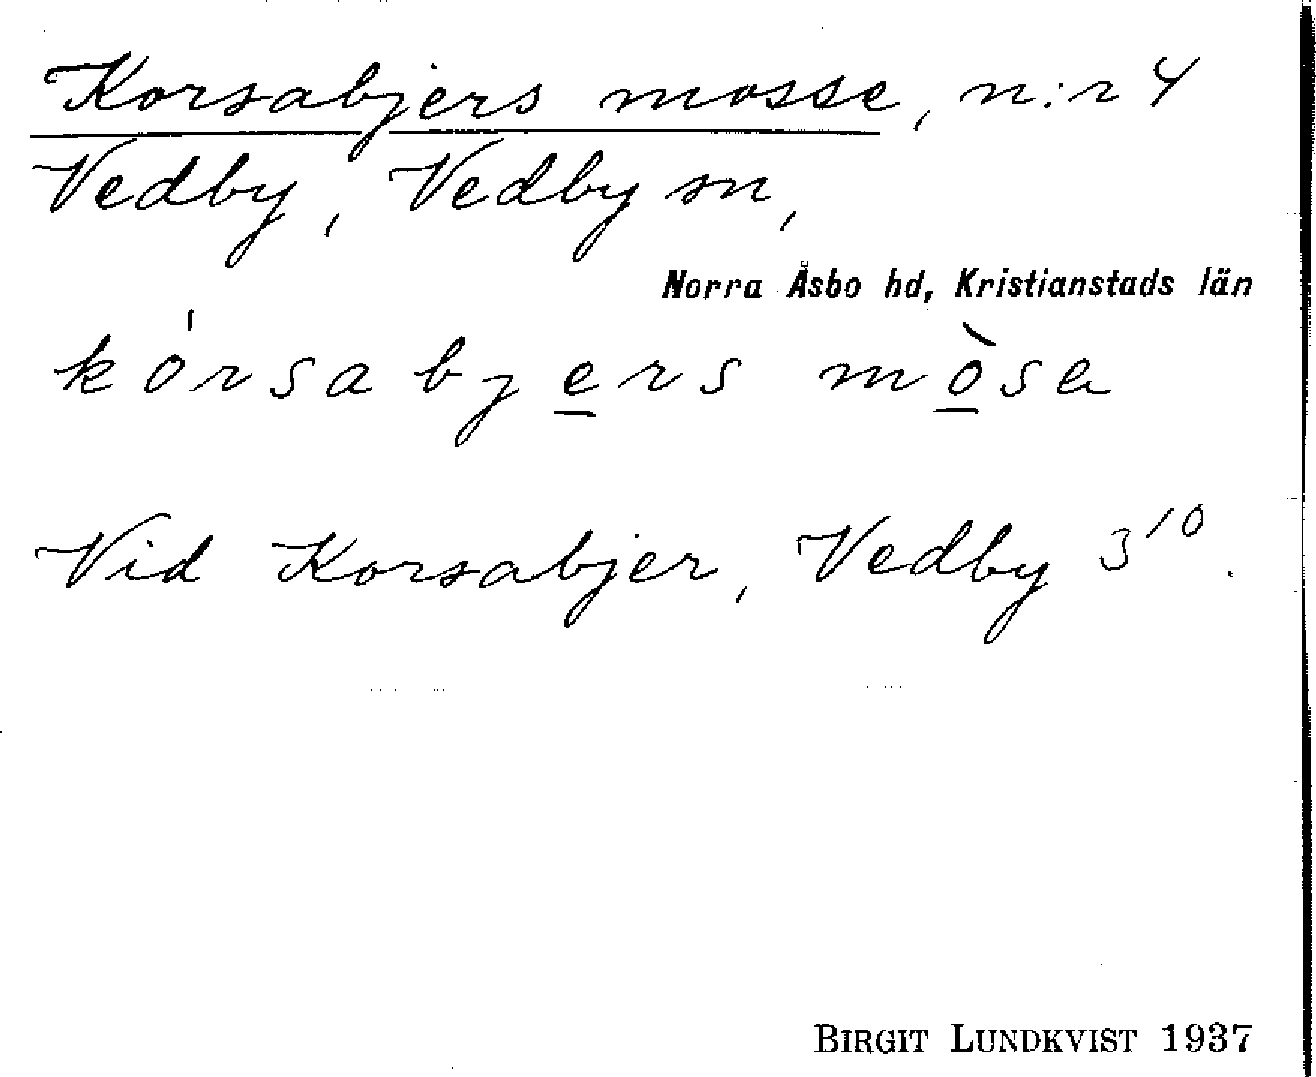 Korsabjers mosse, n:r 4
Vedby, Vedby sn,
Norra Åsbo hd, Kristianstads län
kórsabje̲rs mò̲sa
Vid Korsabjer, Vedby 3¹⁰.
BIRGIT LUNDKVIST 1937